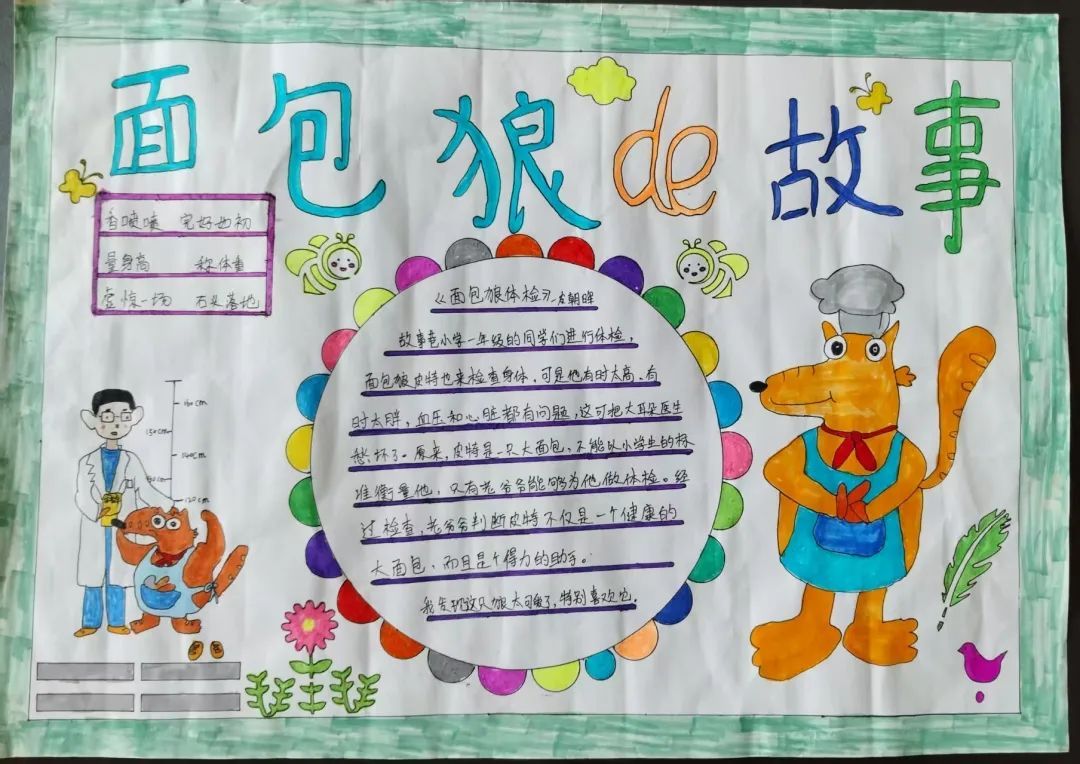 面包狼de故事
香喷喷 完好如初
量身高 称体重
虚惊一场 石头落地
《面包狼体检》皮朝晖
故事巷小学一年级的同学们进行体检，
面包狼皮特也来检查身体，可是他有时太高，有
时太胖，血压和心脏都有问题，这可把大耳朵医生
愁坏了。原来，皮特是一只大面包，不能以小学生的标
准衡量他，只有老爷爷能够为他做体检。经
过检查，老爷爷判断皮特不仅是一个健康的
大面包，而且是个得力的助手。
我觉得这只狼太可爱了，特别喜欢他。
160cm
150cm
140cm
120cm